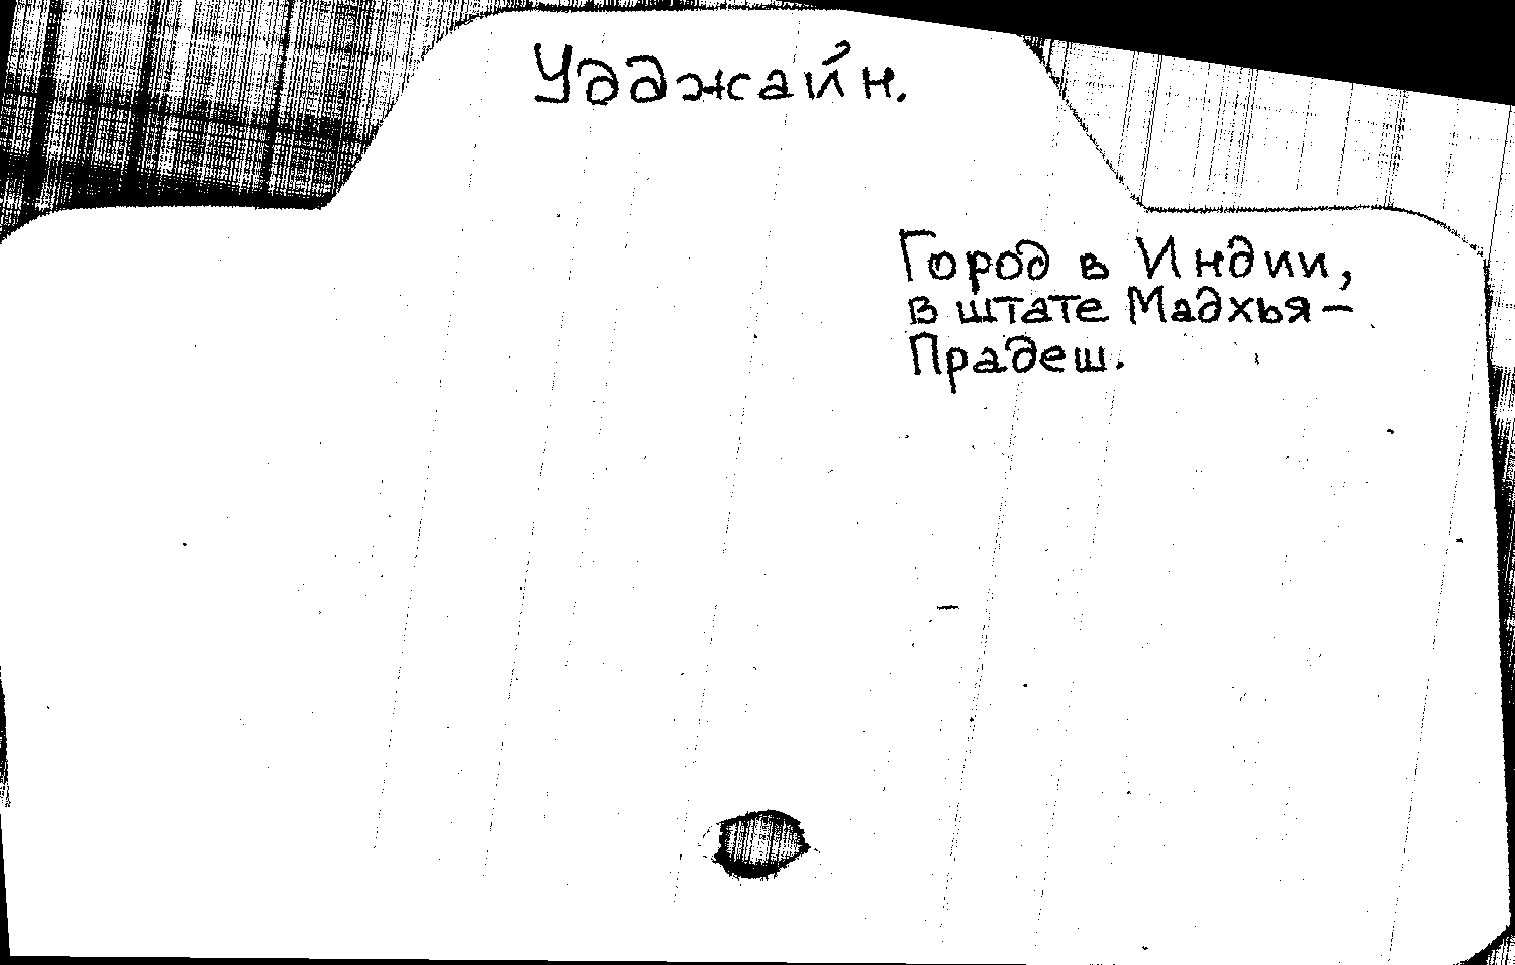 Удджайн.
Город в Индии,
в штате Мадхья-
Прадеш.